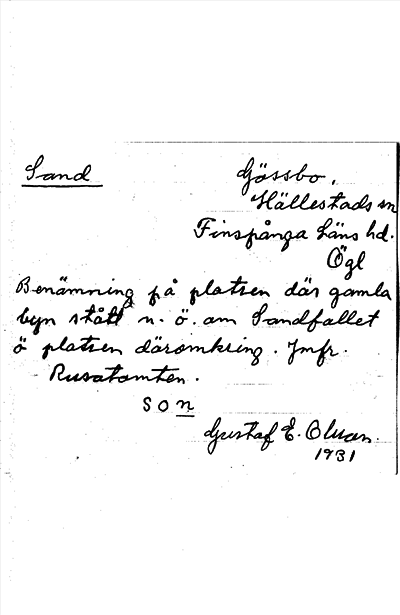 Sand
Gössbo,
Hällestads sn
Finspånga läns hd.
Ögl
Benämning på platsen där gamla
byn stått n. ö. om Sandfallet
ö platsen däromkring. Jmfr.
Rusatomten.
SON
Gustaf E. Olsson.
1931